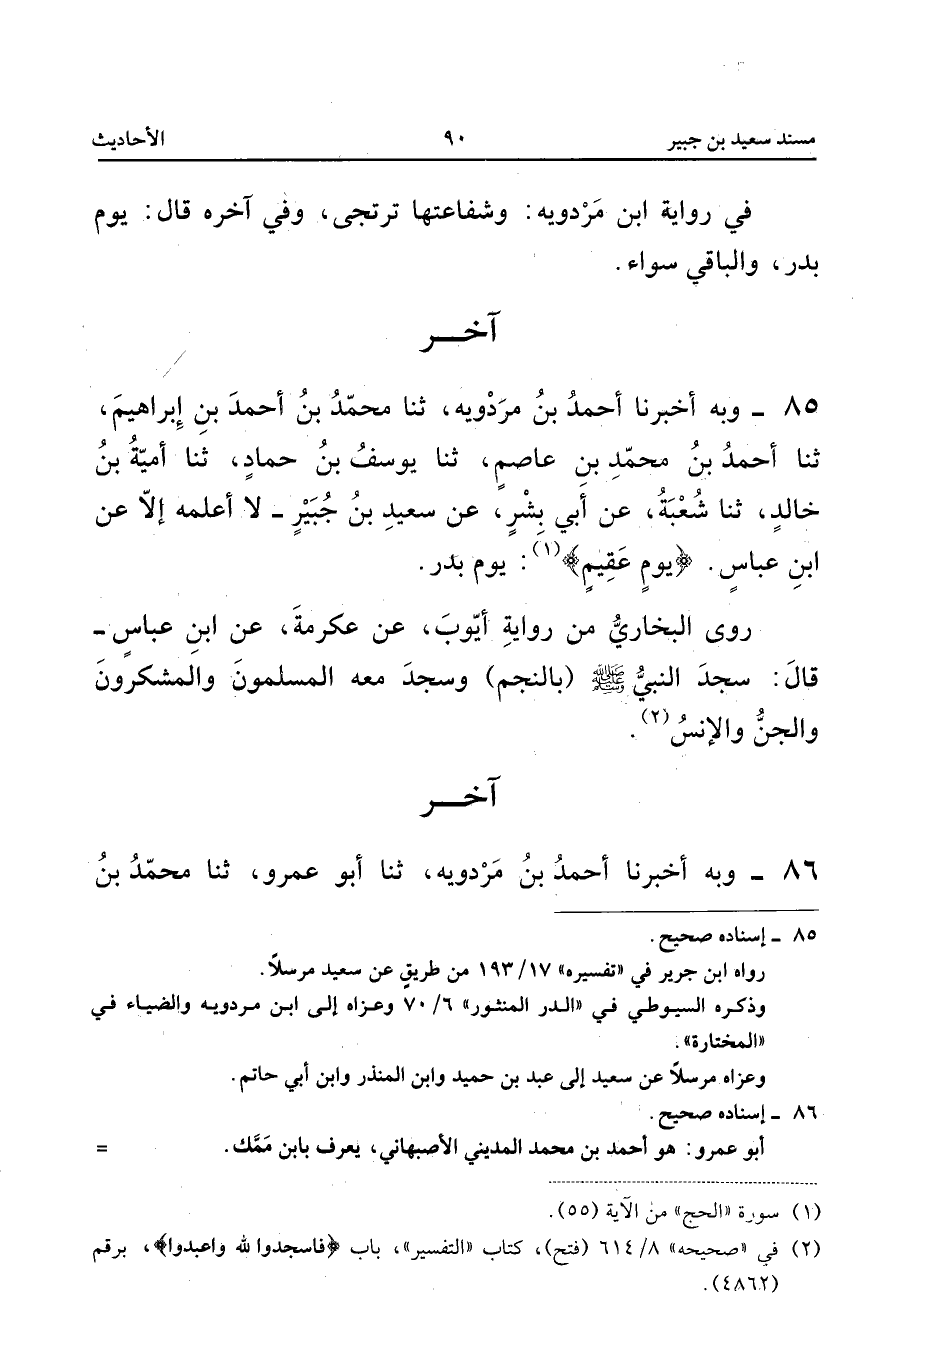 مسند سعيد بن جبير ٩٠ الأحاديث
في رواية ابن مَرْدويه: وشفاعتها ترتجى، وفي آخره قال: يوم
بدر، والباقي سواء.
آخـــر
٨٥ ـ وبه أخبرنا أحمدُ بنُ مردْويه، ثنا محمّدُ بنُ أحمدَ بنِ إبراهيمَ،
ثنا أحمدُ بنُ محمّدِ بنِ عاصمٍ، ثنا يوسفُ بنُ حمادٍ، ثنا أميّةُ بنُ
خالدٍ، ثنا شُعْبَةُ، عن أبي بِشْرٍ، عن سعيدِ بنُ جُبَيْرٍ ـ لا أعلمه إلاّ عن
ابنِ عباسٍ. ﴿يومٍ عَقِيمٍ﴾(١): يوم بدر.
روى البخاريُّ من روايةِ أيّوبَ، عن عكرمةَ، عن ابنِ عباسٍ ـ
قالَ: سجدَ النبيُّ ﷺ (بالنجم) وسجدَ معه المسلمونَ والمشكرونَ
والجنُّ والإنسُ(٢).
آخـــر
٨٦ ـ وبه أخبرنا أحمدُ بنُ مَرْدويه، ثنا أبو عمرو، ثنا محمّدُ بنُ
٨٥ ـ إسناده صحيح.
رواه ابن جرير في «تفسيره» ١٧/ ١٩٣ من طريقٍ عن سعيد مرسلاً.
وذكره السيوطي في «الدر المنثور» ٦/ ٧٠ وعزاه إلى ابن مردويه والضياء في
«المختارة».
وعزاه مرسلاً عن سعيد إلى عبد بن حميد وابن المنذر وابن أبي حاتم.
٨٦ ـ إسناده صحيح.
أبو عمرو: هو أحمد بن محمد المديني الأصبهاني، يعرف بابن مَمَّك. =
(١) سورة «الحج» من الآية (٥٥).
(٢) في «صحيحه» ٨/ ٦١٤ (فتح)، كتاب «التفسير»، باب ﴿فاسجدوا لله واعبدوا﴾، برقم
(٤٨٦٢).